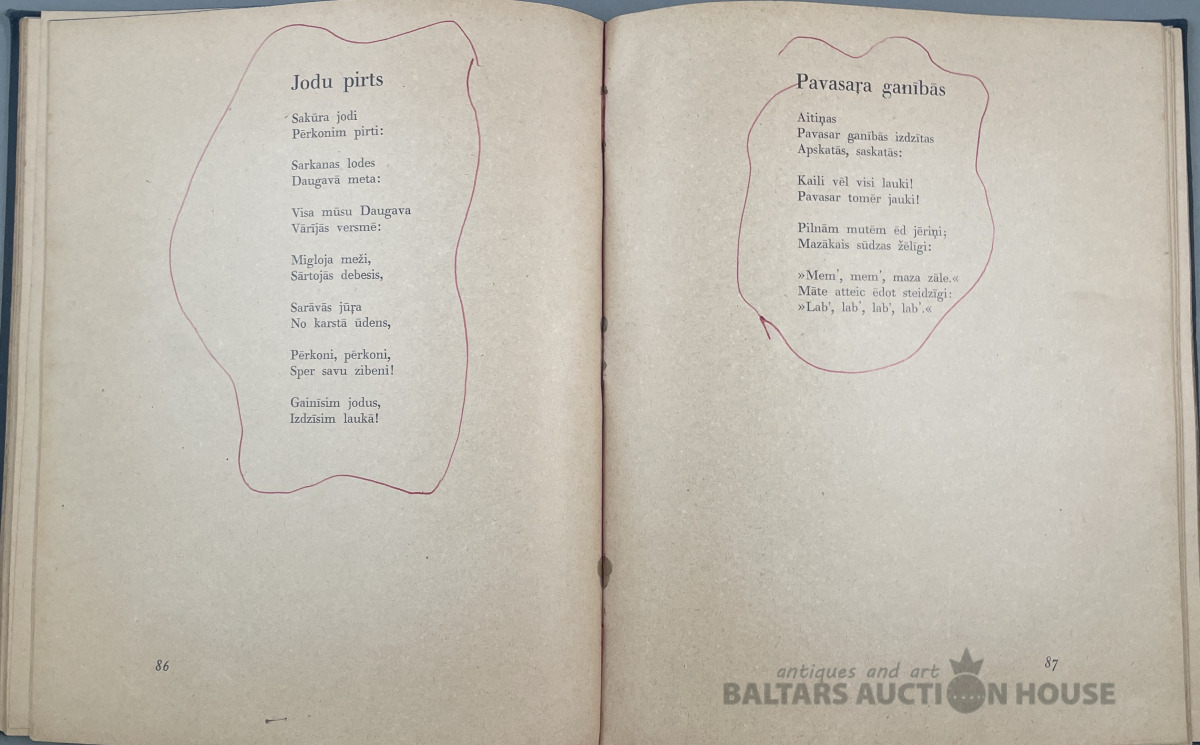 Jodu pirts
Sakūra jodi
Pērkonim pirti:
Sarkanas lodes
Daugavā meta:
Visa mūsu Daugava
Vārījās versmē:
Migloja meži,
Sārtojās debesis,
Sarāvās jūŗa
No karstā ūdens,
Pērkoni, pērkoni,
Sper savu zibeni!
Gainīsim jodus,
Izdzīsim laukā!
86
Pavasaŗa ganībās
Aitiņas
Pavasar ganībās izdzītas
Apskatās, saskatās:
Kaili vēl visi lauki!
Pavasar tomēr jauki!
Pilnām mutēm ēd jēriņi;
Mazākais sūdzas žēlīgi:
»Mem', mem', maza zāle.«
Māte atteic ēdot steidzīgi:
»Lab', lab', lab', lab'.«
87
antiques and art
BALTARS AUCTION HOUSE